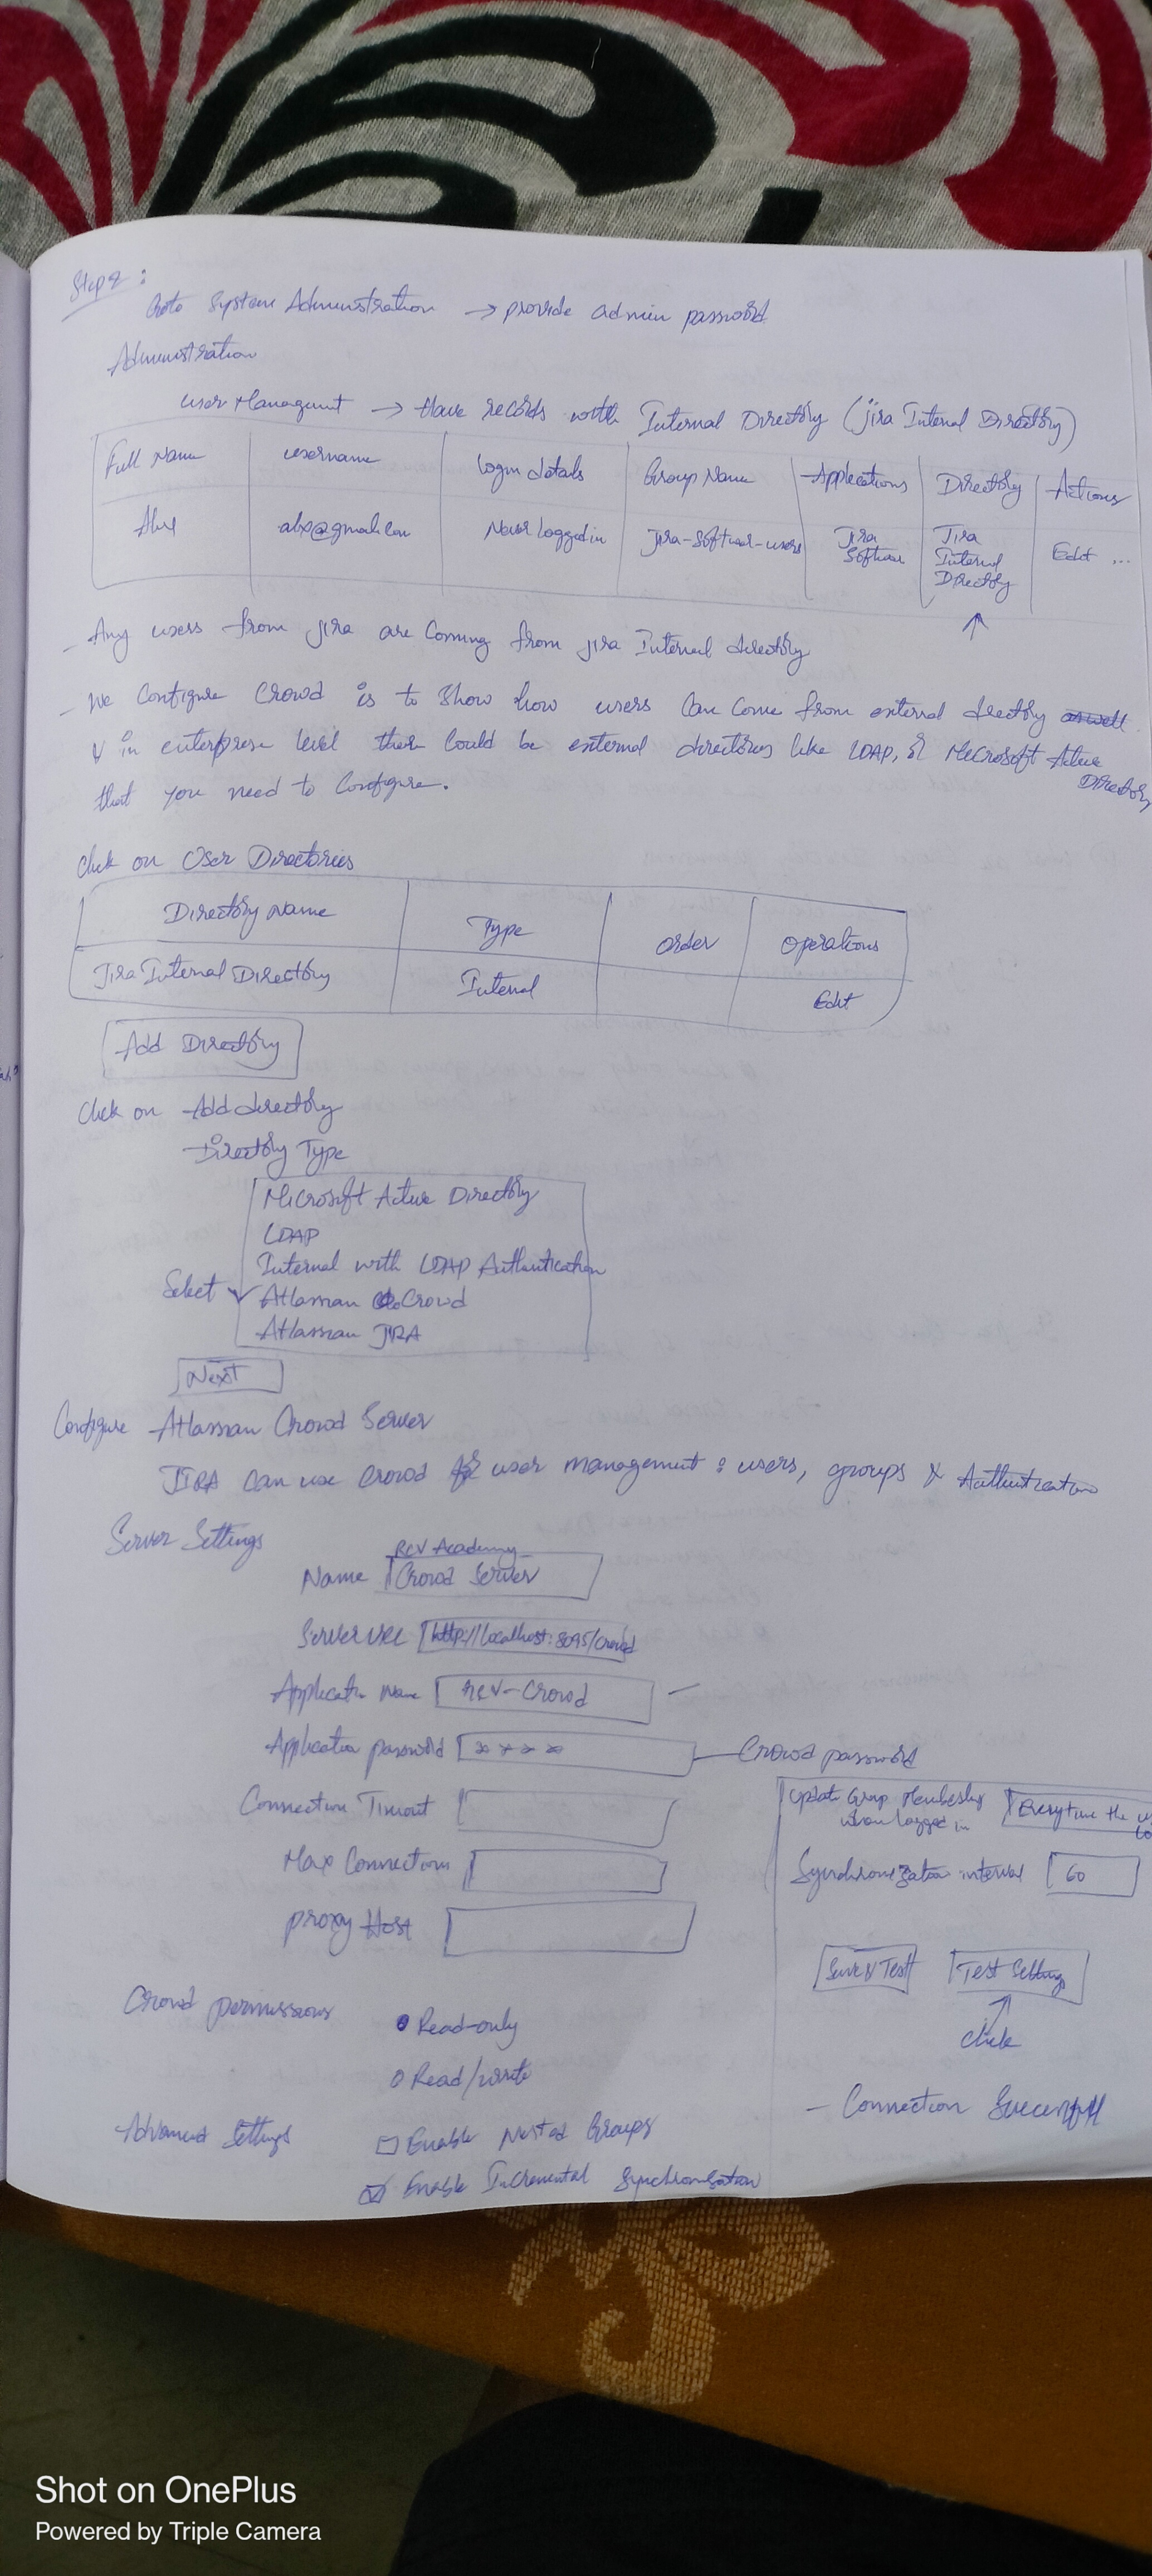 Step 2:
Goto System Administration → provide admin password
Administration
user Management → Have records with Internal Directory (jira Internal Directory)
Full Name | username | login details | Group Name | Applications | Directory | Actions
Never logged in | Jira-Software-users | Jira Software | Jira Internal Directory | Edit ...
- Any users from jira are Coming from jira Internal directory
- We Configure Crowd is to show how users Can Come from external directory as well
& in enterprise level there Could be external directories like LDAP, or Microsoft Active Directory
that you need to Configure.
Click on User Directories
Directory Name | Type | order | Operations
Jira Internal Directory | Internal | Edit
Add Directory
Click on Add directory
Directory Type
Microsoft Active Directory
LDAP
Internal with LDAP Authentication
Select ✓ Atlassian Crowd
Atlassian JIRA
Next
Configure Atlassian Crowd Server
JIRA Can use Crowd for user management : users, groups & Authentication
Server Settings
RCV Academy
Name Crowd Server
Server URL http://localhost:8095/crowd
Application Name RCV-Crowd
Application password **** — Crowd password
Connection Timeout
Max Connections
proxy Host
Crowd permissions
Read-only
Read/write
Advanced Settings
Enable Nested Groups
Enable Incremental Synchronization
Update Group Membership when logged in Every time the
Synchronization interval 60
Save & Test Test Settings
Click
- Connection Successful
Shot on OnePlus
Powered by Triple Camera